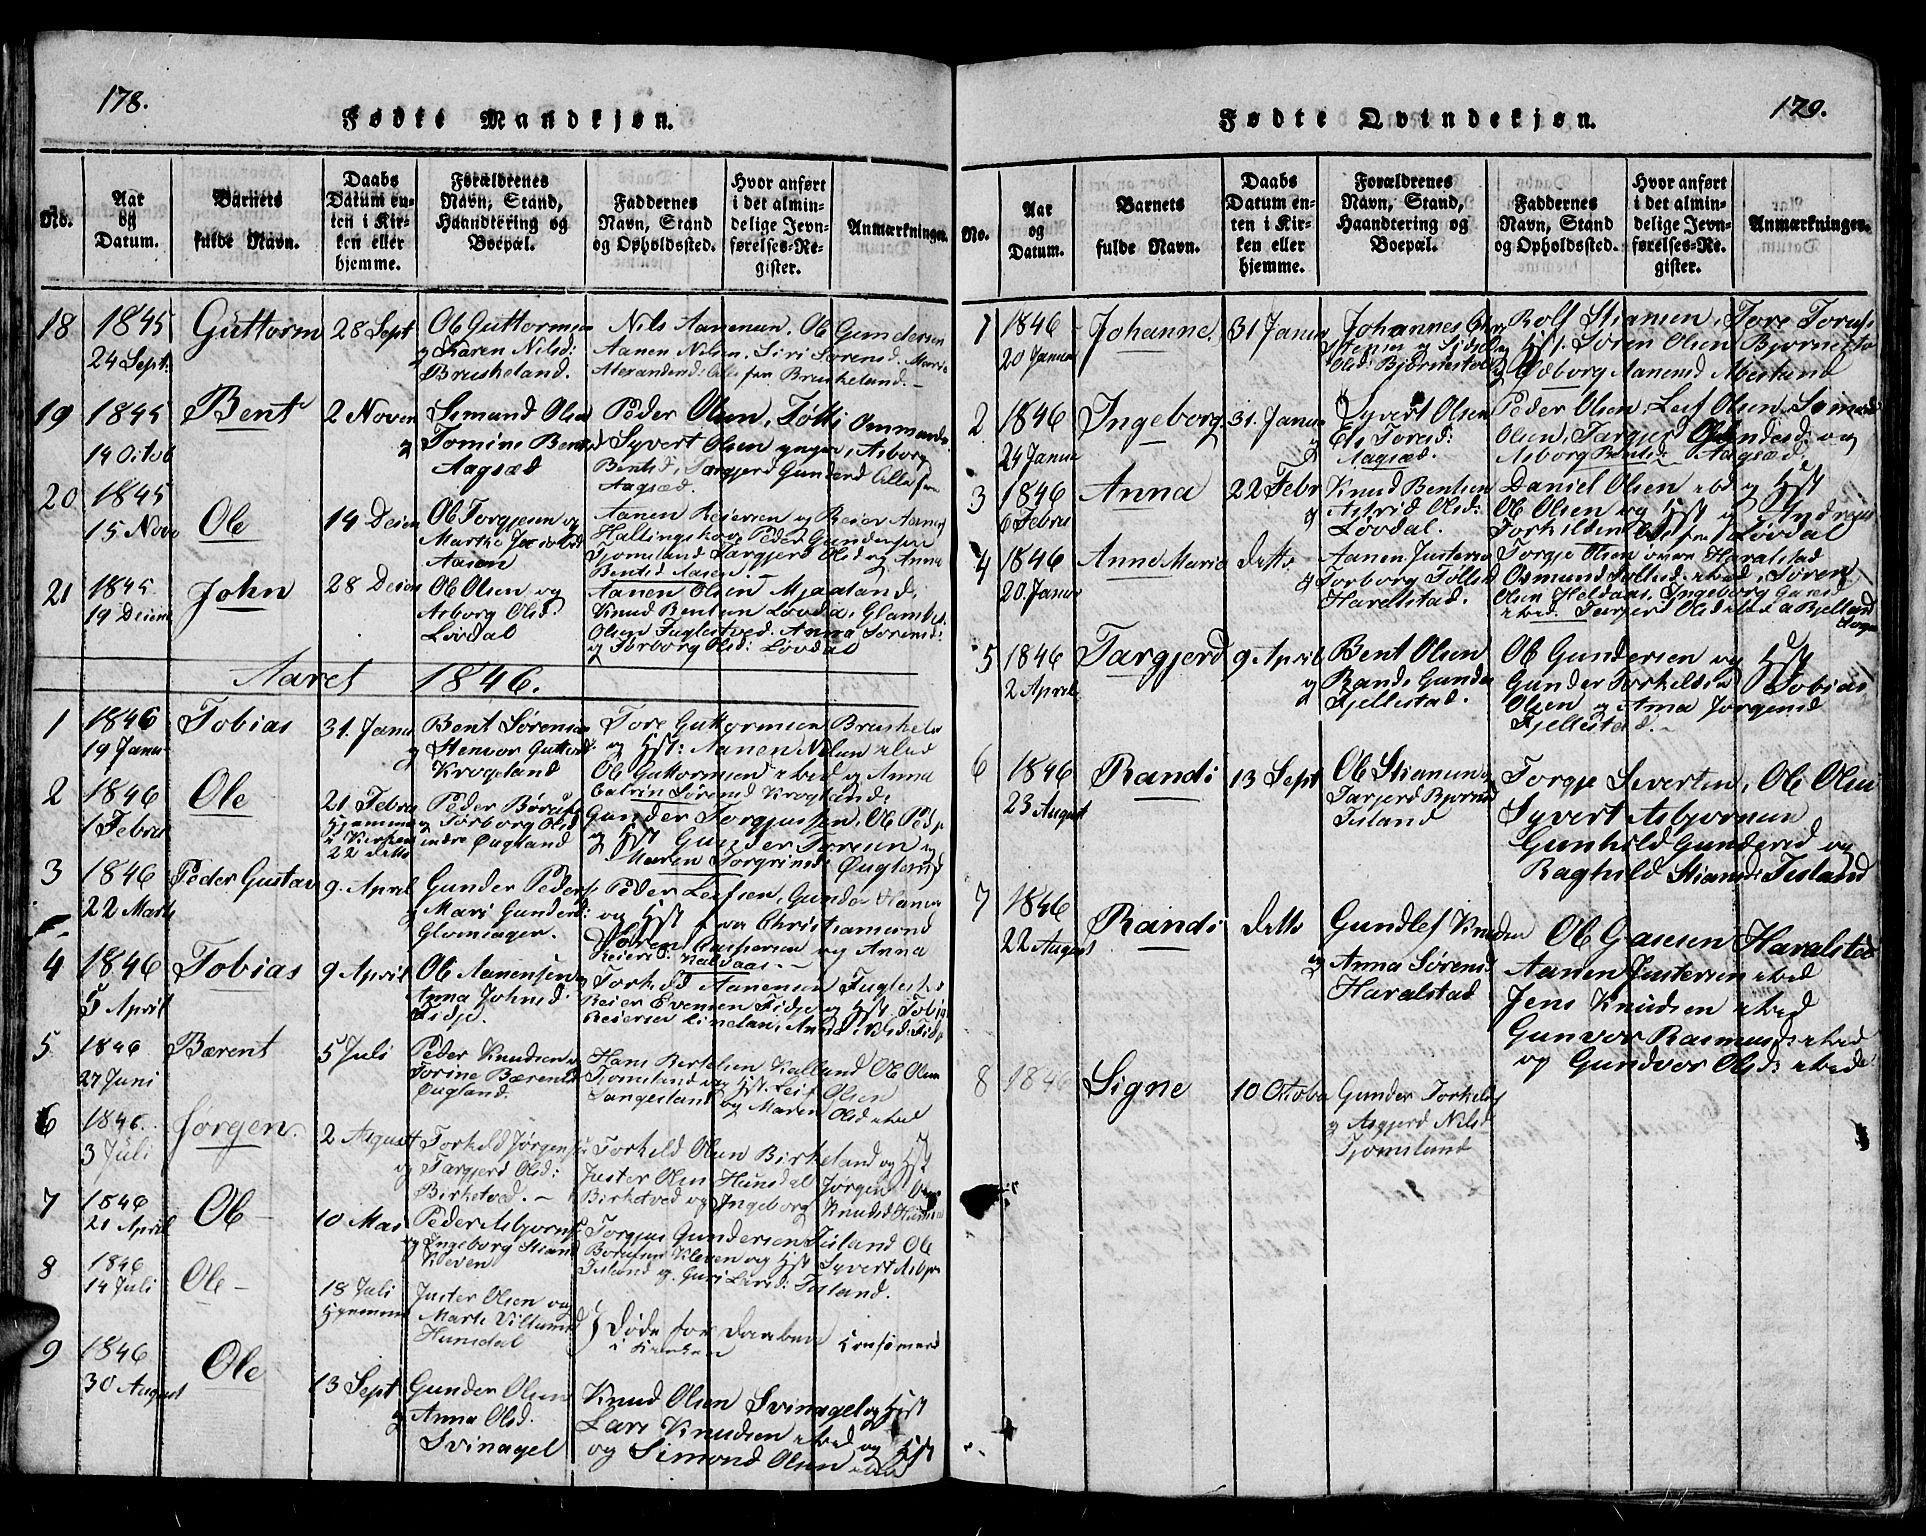 178.
Fødte Mandkjøn.
No.
Aar og Datum.
Barnets fulde Navn.
Daabs Datum enten i Kirken eller hjemme.
Forældrenes Navn, Stand, Haandtering og Boepæl.
Faddernes Navn, Stand og Opholdssted.
Hvor anført i det almindelige Jevnførelses-Register.
Anmærkninger.
18 1845 24 Sept: Guttorm 28 Sept
Karen Nilsd:
Bruskeland.
Nils Aanensen. Ole Gundersen
Aanen Nilsen. Siri Sørensd. Marie
Alle fra Bruskeland.
19 1845 14 Octob Bent 2 Novem
Simund Olsen
Tomine Bents
Aagsæd
Peder Olsen,
Syvert Olsen yngre, Asborg
Bentsd, Targjerd Gundersd Alle fra
Aagsæd.
20 1845 15 Novb Ole 14 Decem
Ole Torgjesen og
Marthe Jacobsd
Aasen
Aanen Reiersen og Reier Aanens
Peder Gundersen
Tjomsland Targjerd Olsd og Anna
Bentsd Aasen.
21 1845. 19 Decem John 28 Decem
Ole Olsen og
Asborg Olsd.
Løvdal
Aanen Olsen Mjaaland,
Knud Bentsen Løvda,
Olsen Fuglestved. Anna Sørensd:
og Torborg Olsd: Løvdal
Aaret 1846.
1 1846 19 Janu Tobias 31. Janu
Bent Sørensen
Stenvor Guttorsd
Krogeland
Tore Guttormsen Bruskeland
og Hst: Aanen Nilsen ibid
Ole Guttormsen ibid og Anna
Catrin Sørensd Krogland:
2 1846 1 Febru Ole 21. Febru
Hjemme
i Kirken
22 detto
Peder Børufs
og Torborg Olsd
indre Øugland
Gunder Torgjussen, Ole Peds
og Hst Gunder Toresen og
Maren Torgrimsd Øugland
3 1846 22 Marts Peder Gustav 9 April
Gunder Peders
Mari Gundersd:
Glomsager.
Peder Leifsen, Gunder Hansen
og Hst fra Christiansund
Søren Caspersen og Anna
Reiersd:
4 1846 5 April Tobias 9 April
Ole Aanensen
Anna Johnsd.
Fidje.
Torkild Aanensen Fuglestv
Reier Evensen Fidje og Hst Tobias
Reiersen
5 1846 27 Juni Bærent 5 Juli
Peder Knudsen
Torine Bærents
Øugland.
Hans Bertelsen Kalland Ole Olsen
Tjomsland og Hst. Leif Olsen
Langesland og Maren Olsd ibid
6 1846. 3 Juli Jørgen. 2 August
Torkild Jørgens
og Targjerd Olsd:
Birketved.
Torkild Olsen Birkeland og Hst
Juster Olsen Hunsdal Jørgen
Birketved og Ingeborg Knudsd
7 1846 21 April Ole 10 Mai
Peder Asbjørns
Ingeborg Stiansd
Kleven
Torgjus Gundersen Tisland Ole
Børufsen Kleven og Hst Syvert Asbjø
Tisland og Guri Tisland.
8 1846 14 Juli Ole 18 Juli
Hjemme
Juster Olsen og
Marte
Hunsdal
Døde før Daaben
i Kirken
9 1846 30 August Ole 13 Sept
Gunder Olsen
og Anna Olsd.
Svinagel
Knud Olsen Svinagel og Hst
Lars Knudsen ibid og Hst
og Simond Olsen ibid
179.
Fødte Qvindekjøn.
No.
Aar og Datum.
Barnets fulde Navn.
Daabs Datum enten i Kirken eller hjemme.
Forældrenes Navn, Stand, Haandtering og Boepæl.
Faddernes Navn, Stand og Opholdssted.
Hvor anført i det almindelige Jevnførelses-Register.
Anmærkninger.
1 1846 20 Janua Johanne. 31 Janu
Johannes
Olsd: Bjørnestøl
Rolf Stiansen. Tore Torufs
og Hst. Søren Olsen Bjørnestøl
Aanensd Abestund
2 1846 24 Janua Ingeborg. 31. Janu
Syvert Olsen
og Toresd:
Aagsæd.
Peder Olsen, Leif Olsen Simond
Olsen, Targjer og
Asborg Bentsd Aagsæd,
3 1846 6 Febru Anna 22 Febr
Knud Bentsen
og Astrid Olsd:
Løvdal.
Daniel Olsen ibid og Hst
Ole Olsen og Hst og Andreas
Torkildsen Alle fra Løvdal
4 1846 20. Janu Anne Marie detto
Aanen Justersen
og Torborg Tollsd
Haralstad.
Torgje Olsen øvre Haralstad
Osmund ibid, Søren
Olsen Ingeborg
ibid Targjerd Olsd ibid
5 1846 2 April Targjerd 9. April
Bent Olsen
og Randi Gunder
Fjellestad.
Ole Gundersen og Hst
Gunder Torkildsen Tobias
Olsen og Anna Jørgensd
Fjellestad.
6 1846 23 August Randi 13 Sept
Ole Stiansen
Tarjerd Bjørnsd
Tisland
Torgje Sivertsen, Ole Olsen
Syvert Asbjørnsen
Gunhild Gundersd og
Raghild Stiansd: Tisland
7 1846 22 August Randi detto
Gundlef Knudsen
og Anna Sørensd
Haralstad
Ole Haralstad
Aanen Justersen ibid
Jens Knudsen ibid
Gunvor Rasmusd: ibid
og Gundvor Olsd: ibid
8 1846 Signe 10 Octobe
Gunder Torkilds
og Asgjerd Nilsd
Tjomsland